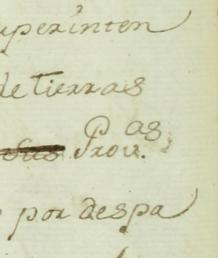 uperinten
de tierras
sus Prov.as
por despa